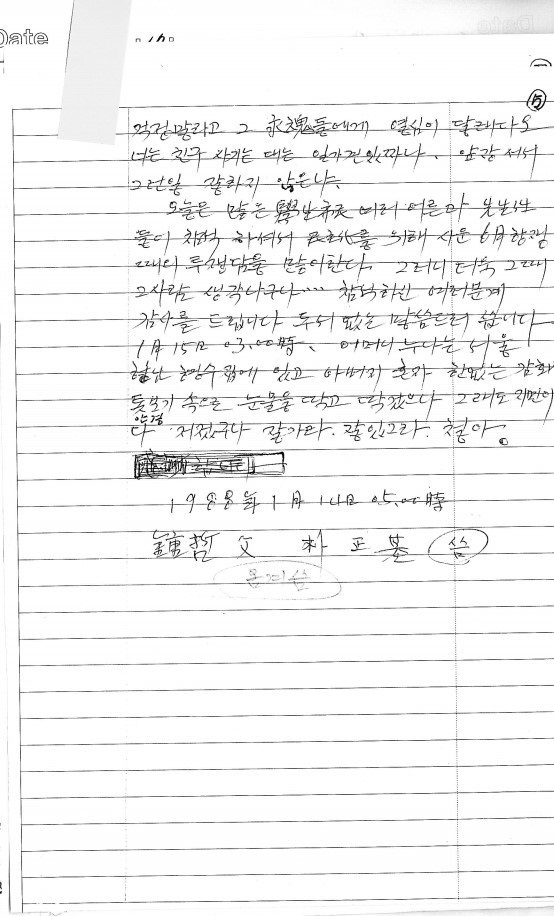 Date
⑮
걱정말라고 그 永魂들에게 열심이 달래다오
너는 친구 사기는 대는 일가견있짜나. 앞장 서서
그런일 잘하지 않은냐.
오늘은 많은 여러 어른과 선
들이 참석 하셔서 民主化를 위해 사운 6月항쟁
때의 투쟁담을 많이한다. 그러니 더욱 그때
그사람 생각나구나..... 참석하신 여러분게
감사를 드립니다 두서 없는 말씀드려 습니다
1月 15日 03.00時. 어머니 누나는 서울
형님 있고 아버지 혼자 한없는 감회
돗보기 속으로 눈물을 딱고 딱갔으나 그래도 지면이
안경
다 저젔구나 잘가라. 잘있그라. 철아.
1988年 1月 14日 05.00時
鍾哲 父 朴正基 씀